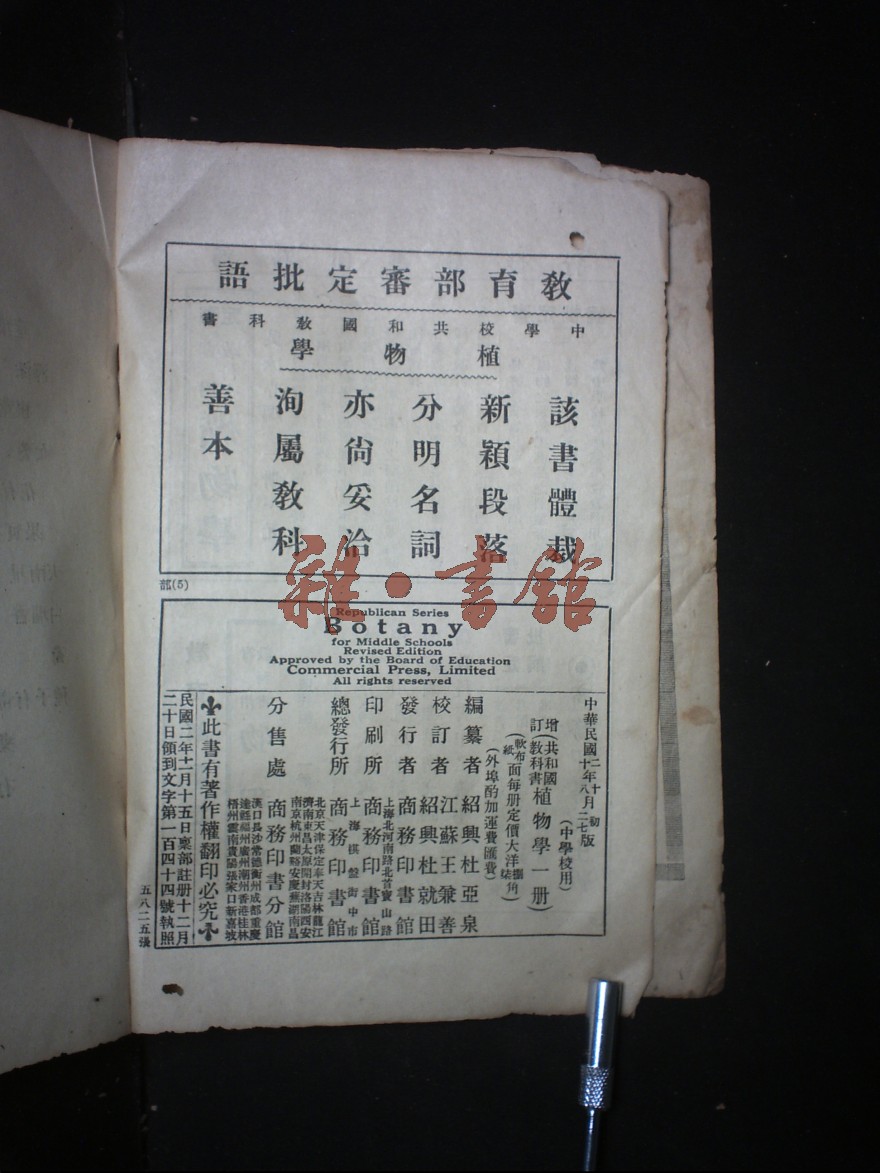 教育部審定批語
中學校共和國教科書
植物學
該書體裁
新穎段落
分明名詞
亦尙妥洽
洵屬教科
善本
部(5)
雜·書館
Republican Series
Botany
for Middle Schools
Revised Edition
Approved by the Board of Education
Commercial Press, Limited
All rights reserved
中華民國
版
(中學校用)
增訂(共和國教科書)植物學一册)
(軟布面每册定價大洋
紙
(外埠酌加運費匯費)
編纂者 紹興杜亞泉
校訂者 江蘇王兼善
紹興杜就田
發行者 商務印書館
上海北河南路北首寶山路
印刷所 商務印書館
上海棋盤街中市
總發行所 商務印書館
北京天津保定奉天吉林龍江
濟南東昌太原開封洛陽西安
南京杭州蘭谿安慶蕪湖南昌
分售處 商務印書分館
漢口長沙常德衡州成都重慶
達縣福州廣州潮州香港桂林
梧州雲南貴陽張家口新嘉坡
此書有著作權翻印必究
民國二年十一月十五日稟部註册十二月
二十日領到文字第一百四十四號執照
五八二五張